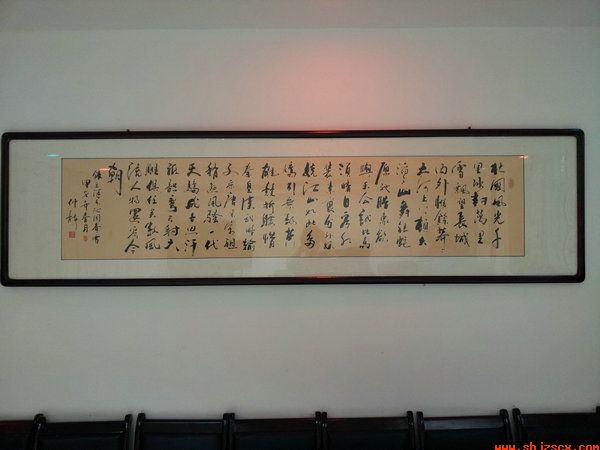 北國風光千
里冰封萬里
雪飄望長城
內外惟餘莽〻
大河上下頓失
滔〻山舞銀蛇
原馳蠟象欲
與天公試比高
須晴日看紅
裝素裹分外妖
嬈江山如此多
嬌引無數英
雄競折腰惜
秦皇漢武略輸
文采唐宗宋祖
稍遜風騷一代
天驕成吉思汗
祇識彎弓射大
雕俱往矣數風
流人物還看今
朝
沁園春雪
甲午年春月
www.shjzscx.com